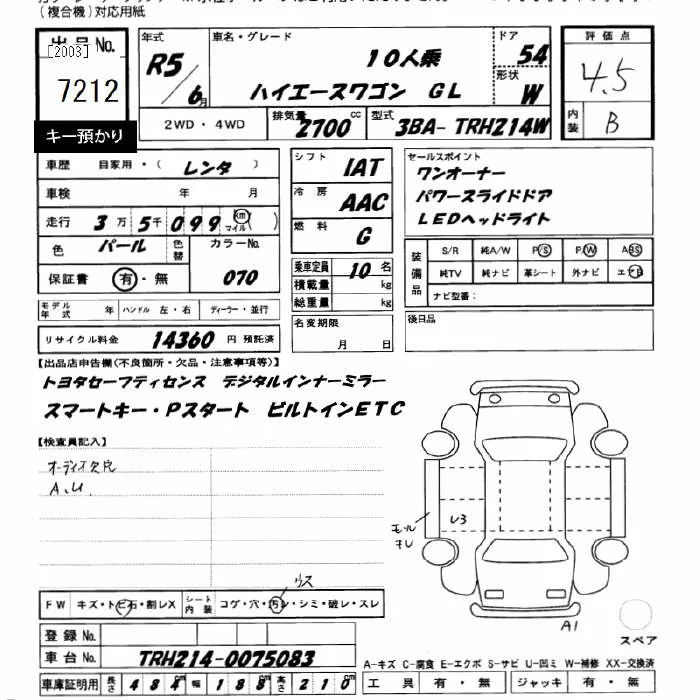 (複合機)対応用紙
出品 No.
[2003]
7212
キー預かり
年式
R5/6月
車名・グレード
10人乗
ハイエースワゴン GL
ドア
54
形状
W
評価点
4.5
内装
B
2WD・4WD
排気量 2700 cc
型式 3BA-TRH214W
車歴 自家用・(レンタ)
車検 年 月
走行 3万5千099 km マイル( )
色 パール 色替
カラーNo. 070
保証書 有・無
シフト IAT
冷房 AAC
燃料 G
乗車定員 10名
積載量 kg
総重量 kg
セールスポイント
ワンオーナー
パワースライドドア
LEDヘッドライト
装備品
S/R 純A/W P/S P/W ABS
純TV 純ナビ 革シート 外ナビ エアB
ナビ型番:
モデル年式 年 ハンドル 左・右 ディーラー・並行
名変期限
月 日
後日品
リサイクル料金 14360 円 預託済
【出品店申告欄(不良箇所・欠品・注意事項等)】
トヨタセーフティセンス デジタルインナーミラー
スマートキー・Pスタート ビルトインETC
【検査員記入】
オーディオ欠品
A.U.
モール
キレ
U3
A1
スペア
ウス
FW キズ・トビ石・割レX
シート内装 コゲ・穴・汚レ・シミ・破レ・スレ
登録 No.
車台 No. TRH214-0075083
車庫証明用 長さ 484 幅 188 高さ 210
A-キズ C-腐食 E-エクボ S-サビ U-凹ミ W-補修 XX-交換済
工具 有・無 ジャッキ 有・無